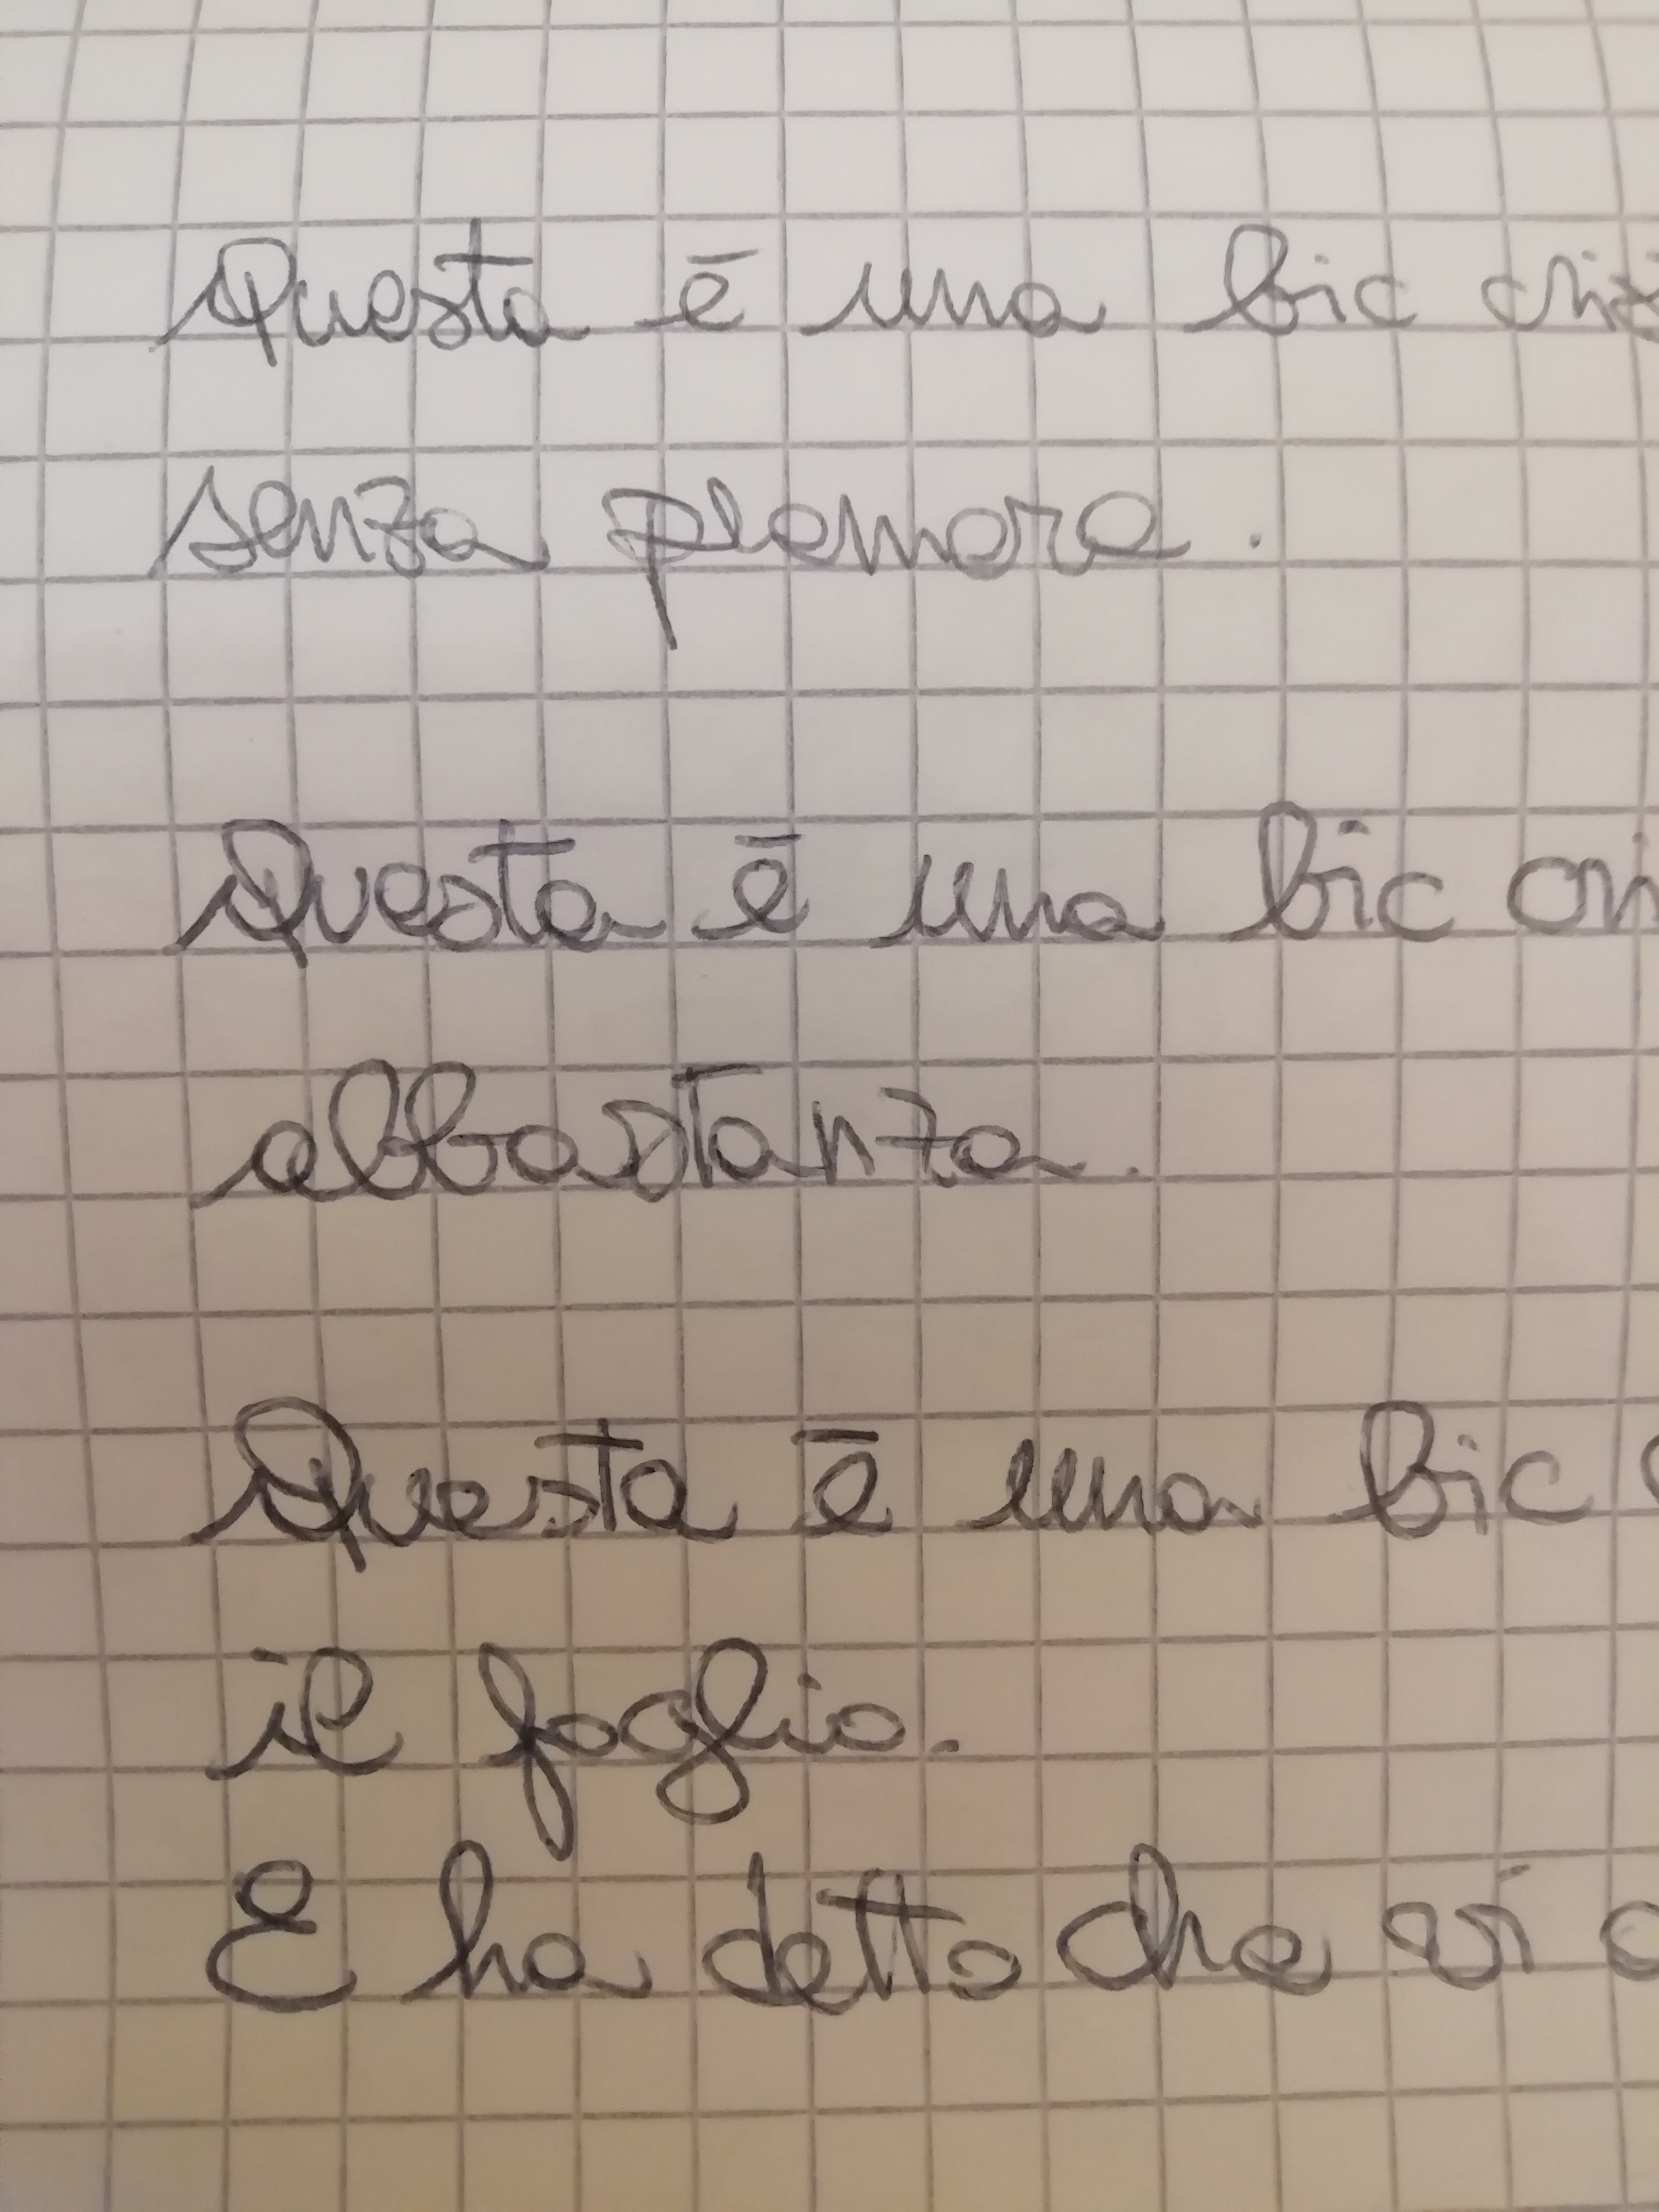 Questa ē una bic
senza premere.
Questa ē una bic
abbastanza.
Questa ē una bic
il foglio.
E ha detto che si